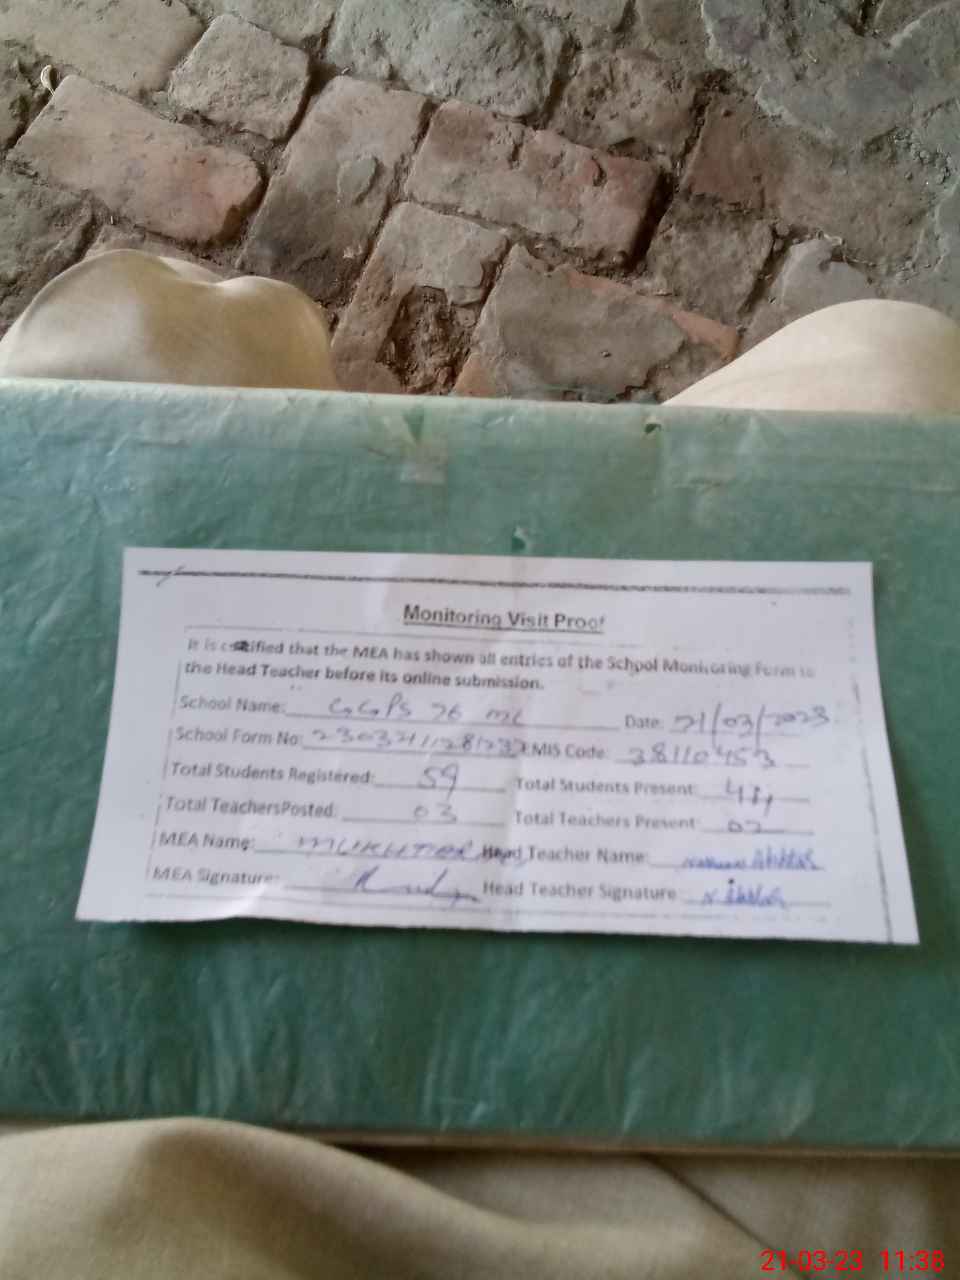 Monitoring Visit Proof
It is certified that the MEA has shown all entries of the School Monitoring Form to
the Head Teacher before its online submission.
School Name: GGPS 76 ML Date: 21/03/2023
School Form No: EMIS Code: 38110453
Total Students Registered: 59 Total Students Present:
Total TeachersPosted: 03 Total Teachers Present: 02
MEA Name: Head Teacher Name:
MEA Signature: Head Teacher Signature:
21-03-23 11:38